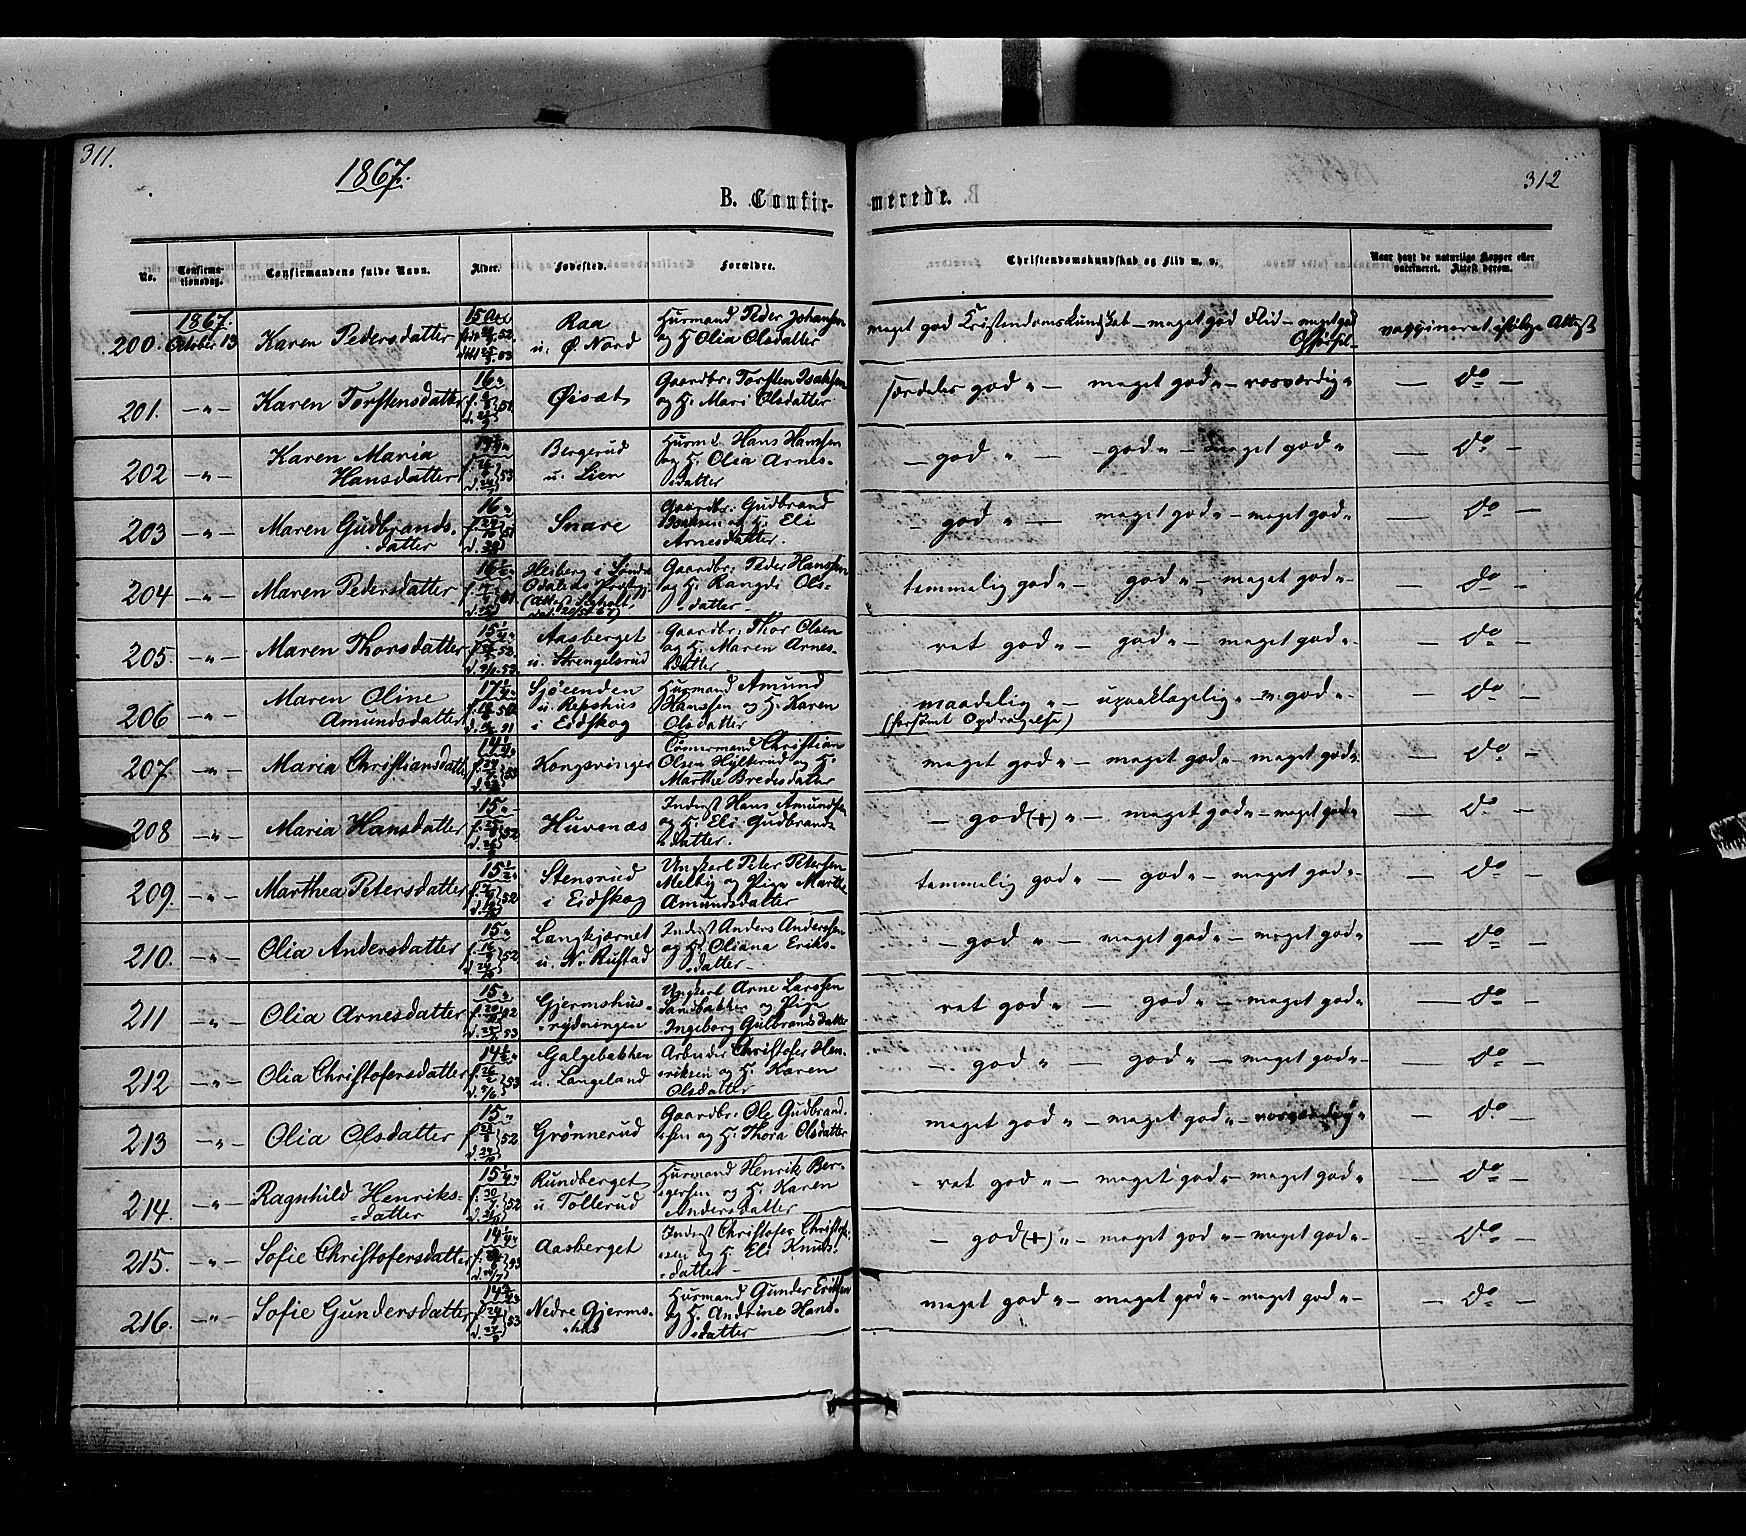 311.
1867.
B. Confir-
merede.
312
No.
Confirma-
tionsdag.
Confirmandens fulde Navn.
Alder.
Fødested.
Forældre.
Christendomskundskab og Flid m. v.
Naar havt de naturlige Kopper eller
vaccineret. Attest derom.
200. 1867. October 13 Karen Pedersdatter
Raa
u. Ø. Nord
Huusmand Peder Johansen
og H. Olia Olsdatter
meget god Kristendomskundskab — meget god Flid — meget god
Opførsel
vaccineret ifølge Attest
201. — " — Karen Torstensdatter 16 "
Øisæt
Gaardbr: Torsten Isaksen
og H. Mari Olsdatter
særdeles god " — meget god " — rosværdig "
— do —
202 — " — Karen Maria
Hansdatter
Bergerud
u. Lien
Huusmd. Hans Hanssen
og H. Olia Arnes-
datter
— god " — god " — meget god "
— do —
203 — " — Maren Gudbrands-
datter
16 "
Snare
Gaardbr: Gudbrand
og H. Eli
Arnesdatter.
— god " — meget god " — meget god "
— do —
204 — " — Maren Pedersdatter
Gaardbr: Peder Hanssen
og H. Rangdi Ols-
datter
temmelig god " — god " — meget god "
— do —
205. — " — Maren Thorsdatter
Aasberget
u. Strengelsrud
Gaardbr: Thor Olsen
og H. Maren Arnes-
datter
ret god " — god " — meget god "
— do —
206 — " — Maren Oline
Amundsdatter
Sjøeenden
u. Repshus
i Eidskog
Huusmand Amund
Hanssen og H. Karen
Olsdatter
maadelig " — upaaklagelig " — m. god "
(forsømt Opdragelse)
— do —
207. — " — Maria Christiansdatter
Kongsvinger
Tømmermand Christian
Olsen og H.
Marthe Bredesdatter
meget god " — meget god " — meget god "
— do —
208 — " — Maria Hansdatter 15 "
Huvenæs
Inderst Hans Amundsen
og H. Eli Gudbrands-
datter.
— god (+) " — meget god " — meget god "
— do —
209. — " — Marthea Petersdatter 15 ½ "
Stensrud
i Eidskog
Ungkarl Peter Petersen
Melby og Pige Marthe
Amundsdatter
temmelig god " — god " — meget god "
— do —
210. — " — Olia Andersdatter 15 "
Langkjernet
u. N. Rustad
Inderst Anders Anderssen
og H. Oliana Eriks-
datter
— god " — meget god " — meget god "
— do —
211 — " — Olia Arnesdatter 15 "
Gjermshus-
rydningen
Ungkarl Arne Larssen
og Pige
Ingeborg Gulbrandsdatter
ret god " — god " — meget god "
— do —
212 — " — Olia Christofersdatter
Galgebakken
u. Langeland
Arbeider Christofer Hen-
riksen og H. Karen
Olsdatter
— god " — god " — meget god "
— do —
213 — " — Olia Olsdatter 15 "
Grønnerud
Gaardbr: Ole Gudbrand-
sen og H. Thora Olsdatter
meget god " — meget god " — rosværdig "
— do —
214. — " — Ragnhild Henriks-
datter
Rundberget
u. Tollerud
Huusmand Henrik Ber-
gersen og H. Karen
Andersdatter
— ret god " — meget god " — meget god "
— do —
215. — " — Sofie Christofersdatter
Aasberget
Inderst Christofer Christof-
sen og H. Eli Knuds-
datter
— god (+) " — meget god " — meget god "
— do —
216. — " — Sofie Gundersdatter
Nedre Gjerms-
hus
Huusmand Gunder Eriksen
og H. Andrine Hans-
datter
meget god " — meget god " — meget god "
— do —